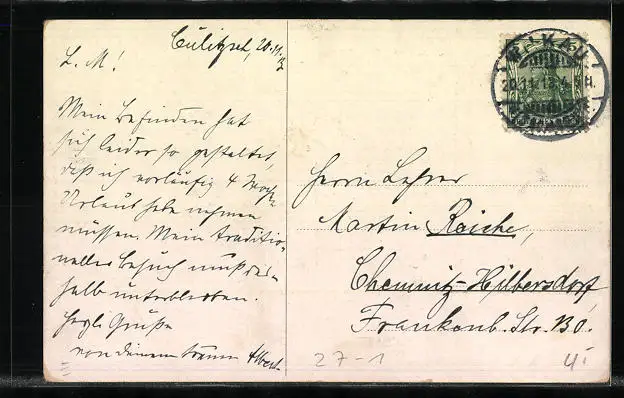 Culitzsch, 20.11.13
L. M!
Mein Befinden hat
sich leider so gestaltet,
daß ich vorläufig 4 Woch.
Urlaub habe nehmen
müssen. Mein traditio-
neller Besuch muß des-
halb unterbleiben.
Herzl. Grüße
von deinem treuen Albert.
WILKAU
20.11.13. 4-5 N.
Herrn Lehrer
Martin Rasche,
Chemnitz-Hilbersdorf
Frankenb. Str. 130.
27-1